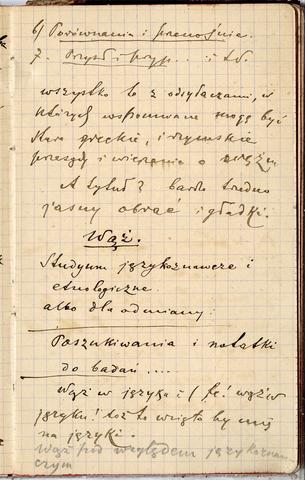 6) Porównania i przenośnie.
7. Przysł. i przyp... i td.
wszystko to z odsyłaczami, w
których wspomniane mogą być
stare greckie, i rzymskie
przesądy i wierzenia o wężu
A tytuł? bardzo trudno
jasny obrać i gładki.
Wąż.
Studyum językoznawcze i
etnologiczne.
albo dla odmiany:
Poszukiwania i notatki
do badań ....
Wąż w języku i (fe! wąż w
języku! toż to wzięto by mię
na języki.
Wąż pod względem językoznaw
czym